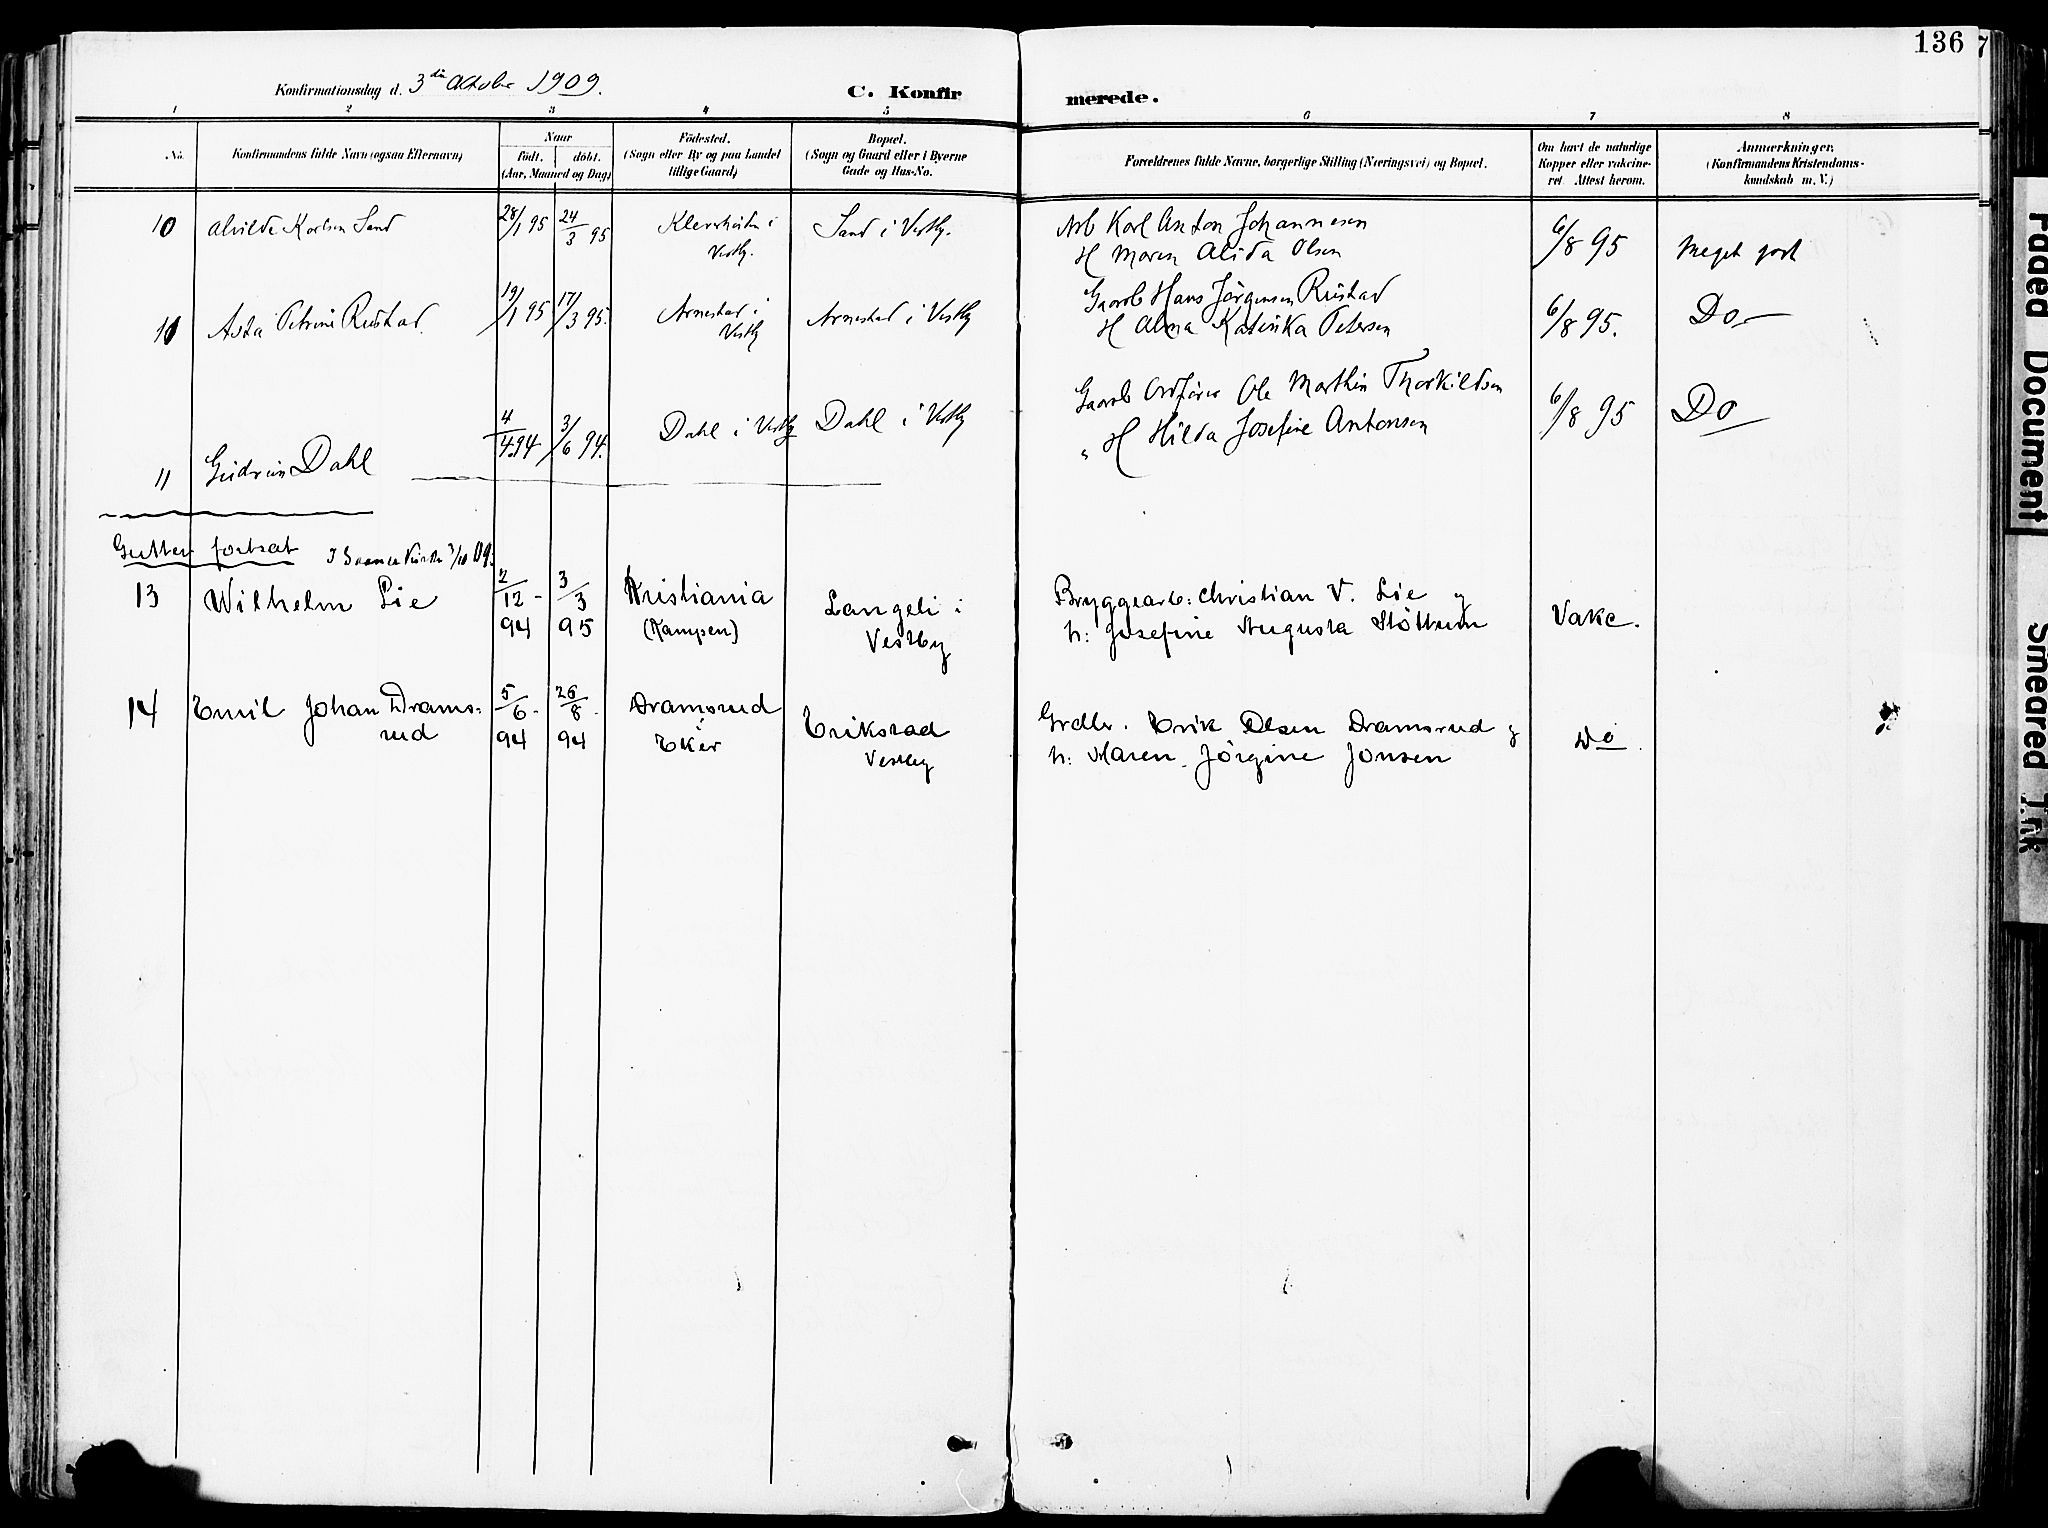 136
Konfirmationsdag d. 3die Oktober 1909.
C. Konfirmerede.
1 2 3 4 5 6 7 8
No.
Konfirmandens fulde Navn (ogsaa Efternavn)
Naar
født. døbt.
(Aar, Maaned og Dag)
Fødested.
(Sogn eller By og paa Landet
tillige Gaard)
Bopæl.
(Sogn og Gaard eller i Byerne
Gade og Hus-No.
Forældrenes fulde Navne, borgerlige Stilling (Næringsvei) og Bopæl.
Om havt de naturlige
Kopper eller vakcine-
ret. Attest herom.
Anmærkninger.
(Konfirmandens Kristendoms-
kundskab m. V.)
10 Alvilde Karlsen Sand 28/1 95 24/3 95 i Vestby. Sand i Vestby. Arb Karl Anton Johannesen 6/8 95 Meget godt
H Maren Alida Olsen
10 Asta Petrine Rustad. 19/1 95 17/3 95. Arnestad i Vestby Arnestad i Vestby Gaardb Hans Jørgensen Rustad 6/8 95. Do
H Alma Katinka Petersen
11 Gudrun Dahl 4/4 94 3/6 94. Dahl i Vestby Dahl i Vestby Gaardb Ordfører Ole Marthin Thorkildsen 6/8 95 Do
" H Hilda Josefine Antonsen
Gutter fortsat I Soner Kirke 3/10 09.
13 Wilhelm Lie 2/12 - 94 3/3 95 Kristiania (Kampen) Langeli i Vestby Bryggearb: Christian V. Lie og Vakc.
h: Josefine Augusta Støttum
14 Emil Johan Dramsrud 5/6 - 94 26/8 - 94 Dramsrud i Eker Erikstad Vestby Grdbr. Erik Olsen Dramsrud og Do.
h: Maren Jørgine Jonsen
Faded Document
Smeared Ink